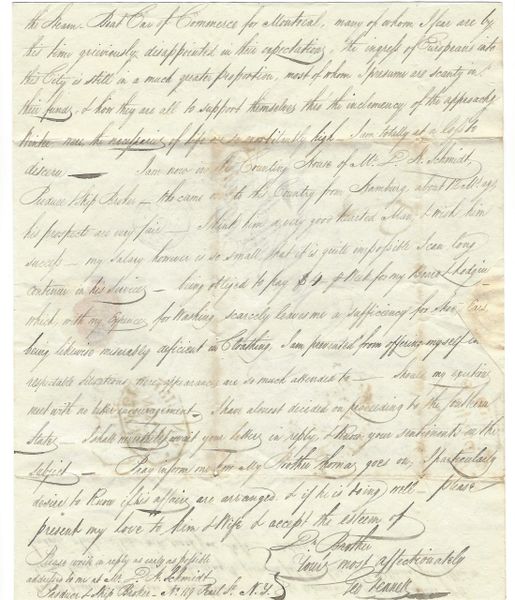 the Steam Boat Car of Commerce for Montreal, many of whom I fear are by
this time grieviously disappointed in their expectations, the ingress of Europeans into
this City is still in a much greater proportion, most of whom I presume are scanty in
their funds, & how they are all to support themselves thro the inclemency of the approachg
Winter, where the necessaries of life are so exorbitantly high I am totally at a loss to
discern — I am now in the Counting House of Mr. A. Schmidt
Produce & Ship Broker — who came out to this Country from Hamburg, about 12 Mos. ago
his prospects are very fair — I think him a very good hearted Man, & wish him
success — my Salary however is so small that it is quite impossible I can long
continue in his Service — being obliged to pay $4 Week for my Board & Lodging
which, with my Expences for Washing scarcely leaves me a sufficiency for Shoes
being likewise miserably deficient in Cloathing, I am prevented from offering myself in
respectable situations, where appearances are so much attended to — should my exertions
meet with no better encouragement — I have almost decided on proceeding to the Southern
States — I shall await your letter in reply, & know your sentiments on the
subject — Pray inform me how My Brother Thomas goes on, I particularly
desire to know if his affairs are arranged & if he is doing well — please
present my love to him & Wife & accept the esteem of
Dr. Brother
Your most affectionately
Geo
Please write in reply as early as possible
addressg to me at Mr. A. Schmidt
Produce & Ship Broker — No. 119 Pearl St. N.Y.